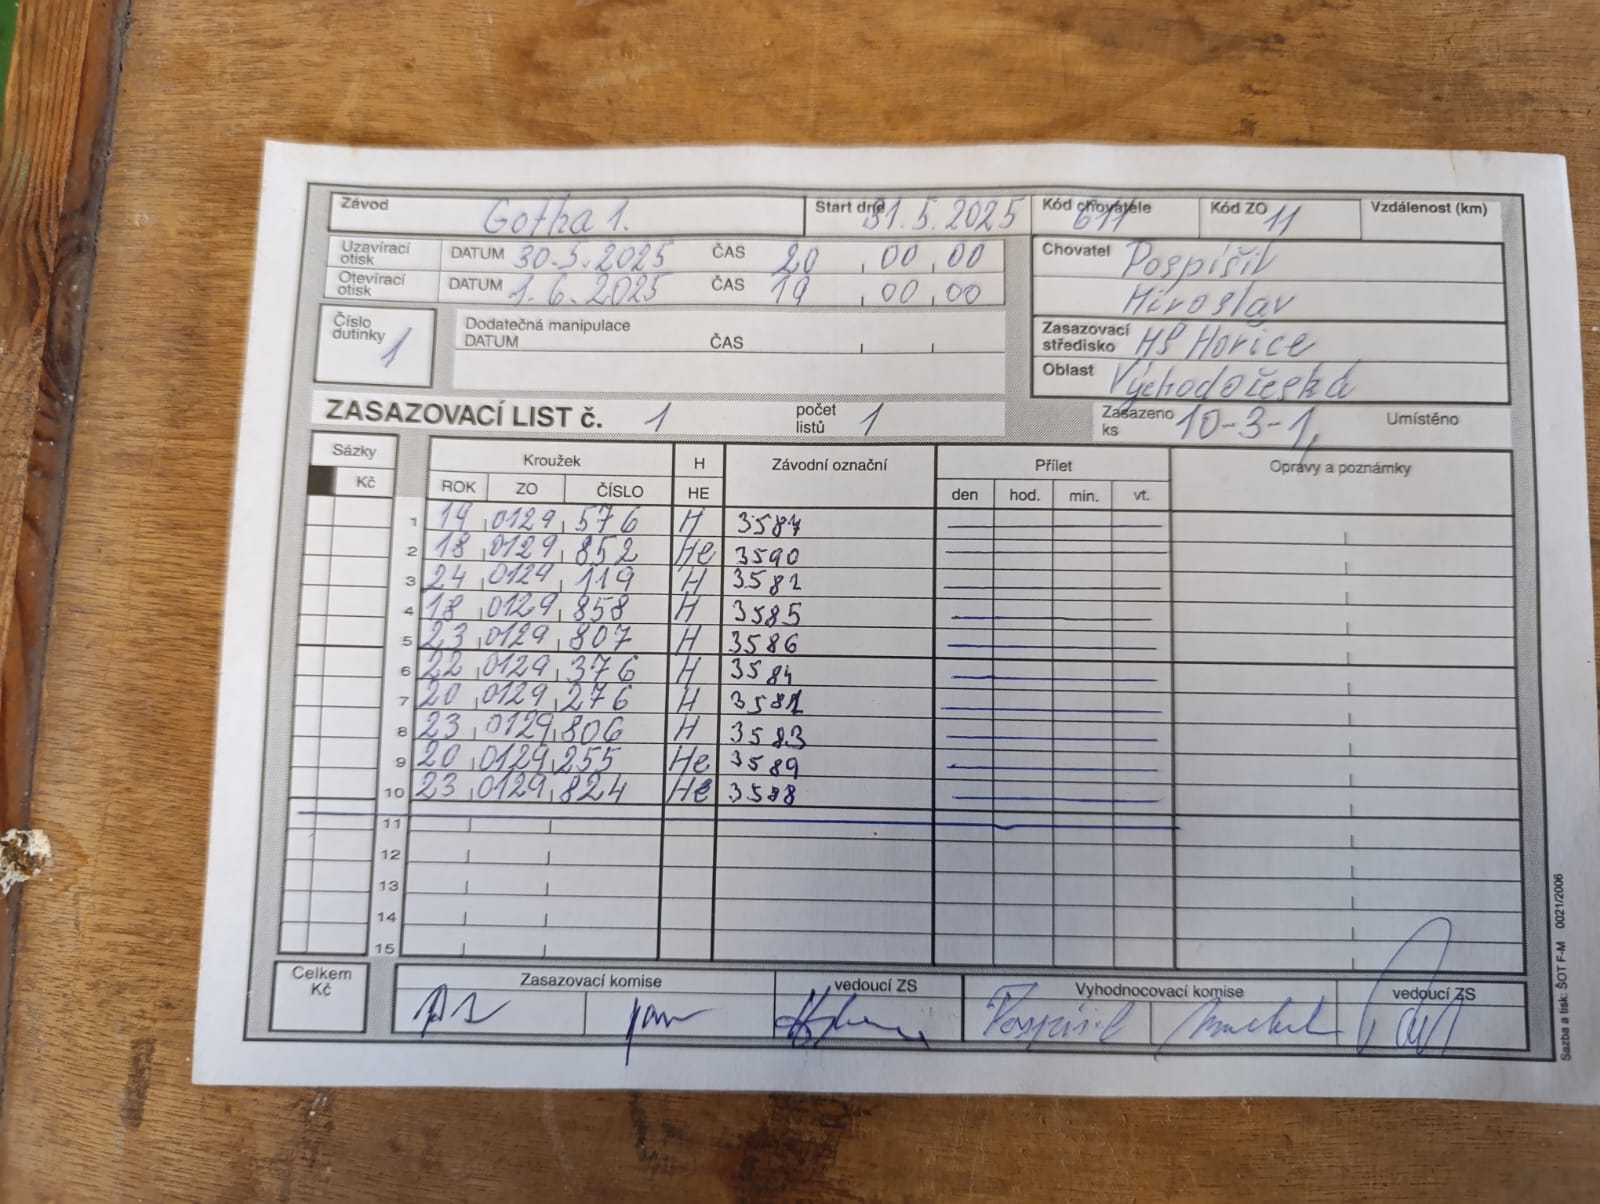 Závod Gotha 1. Start dne 31.5.2025 Kód chovatele 611 Kód ZO 11 Vzdálenost (km)
Uzavírací otisk DATUM 30.5.2025 ČAS 20 00 00
Otevírací otisk DATUM 1.6.2025 ČAS 19 00 00
Chovatel Pospíšil
Miroslav
Číslo dutinky 1
Dodatečná manipulace
DATUM ČAS
Zasazovací středisko HS Hořice
Oblast Východočeská
ZASAZOVACÍ LIST č. 1 počet listů 1 Zasazeno ks 10-3-1, Umístěno
Sázky Kroužek H Závodní označní Přílet Opravy a poznámky
Kč ROK ZO ČÍSLO HE den hod. min. vt.
1 19 0129 576 H
2 18 0129 852 He 3590
3 24 0129 119 H 3582
4 18 0129 858 H 3585
5 23 0129 807 H 3586
6 22 0129 376 H 3584
7 20 0129 276 H
8 23 0129 806 H 3583
9 20 0129 255 He 3589
10 23 0129 824 He 3588
11
12
13
14
15
Celkem Kč Zasazovací komise vedoucí ZS Vyhodnocovací komise vedoucí ZS
Pospíšil
Sazba a tisk: ŠOT F-M 0021/2006